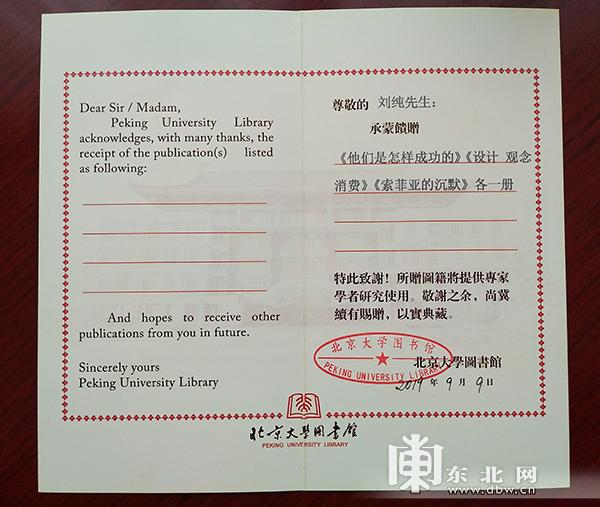 Dear Sir / Madam,
Peking University Library
acknowledges, with many thanks, the
receipt of the publication(s) listed
as following:
And hopes to receive other
publications from you in future.
Sincerely yours
Peking University Library
尊敬的 刘纯先生：
承蒙饋贈
《他们是怎样成功的》《设计 观念
消费》《索菲亚的沉默》各一册
特此致謝！所贈圖籍將提供專家
學者研究使用。敬謝之余，尚冀
續有賜贈，以實典藏。
北京大学图书馆
PEKING UNIVERSITY LIBRARY
北京大學圖書館
2019 年 9 月 9 日
北京大學圖書館
PEKING UNIVERSITY LIBRARY
東 东北网
www.dbw.cn